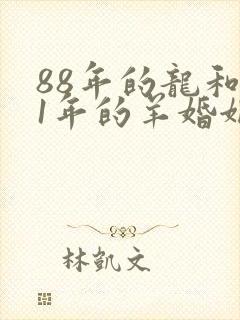 88年的龍和
1年的羊婚姻
林凱文